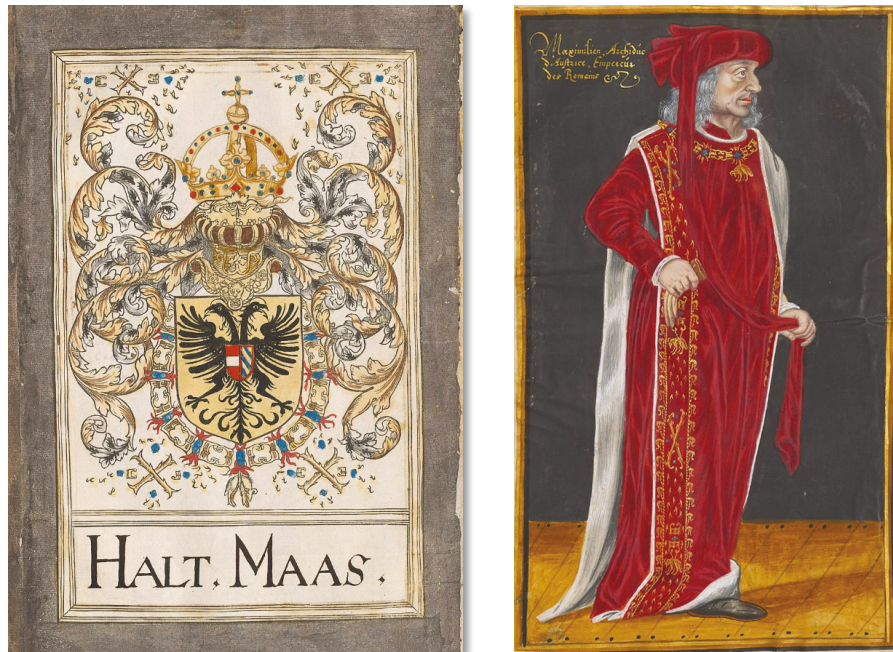 HALT. MAAS.
Maximilien, Archiduc
d'Austrice, Empereur
des Romains